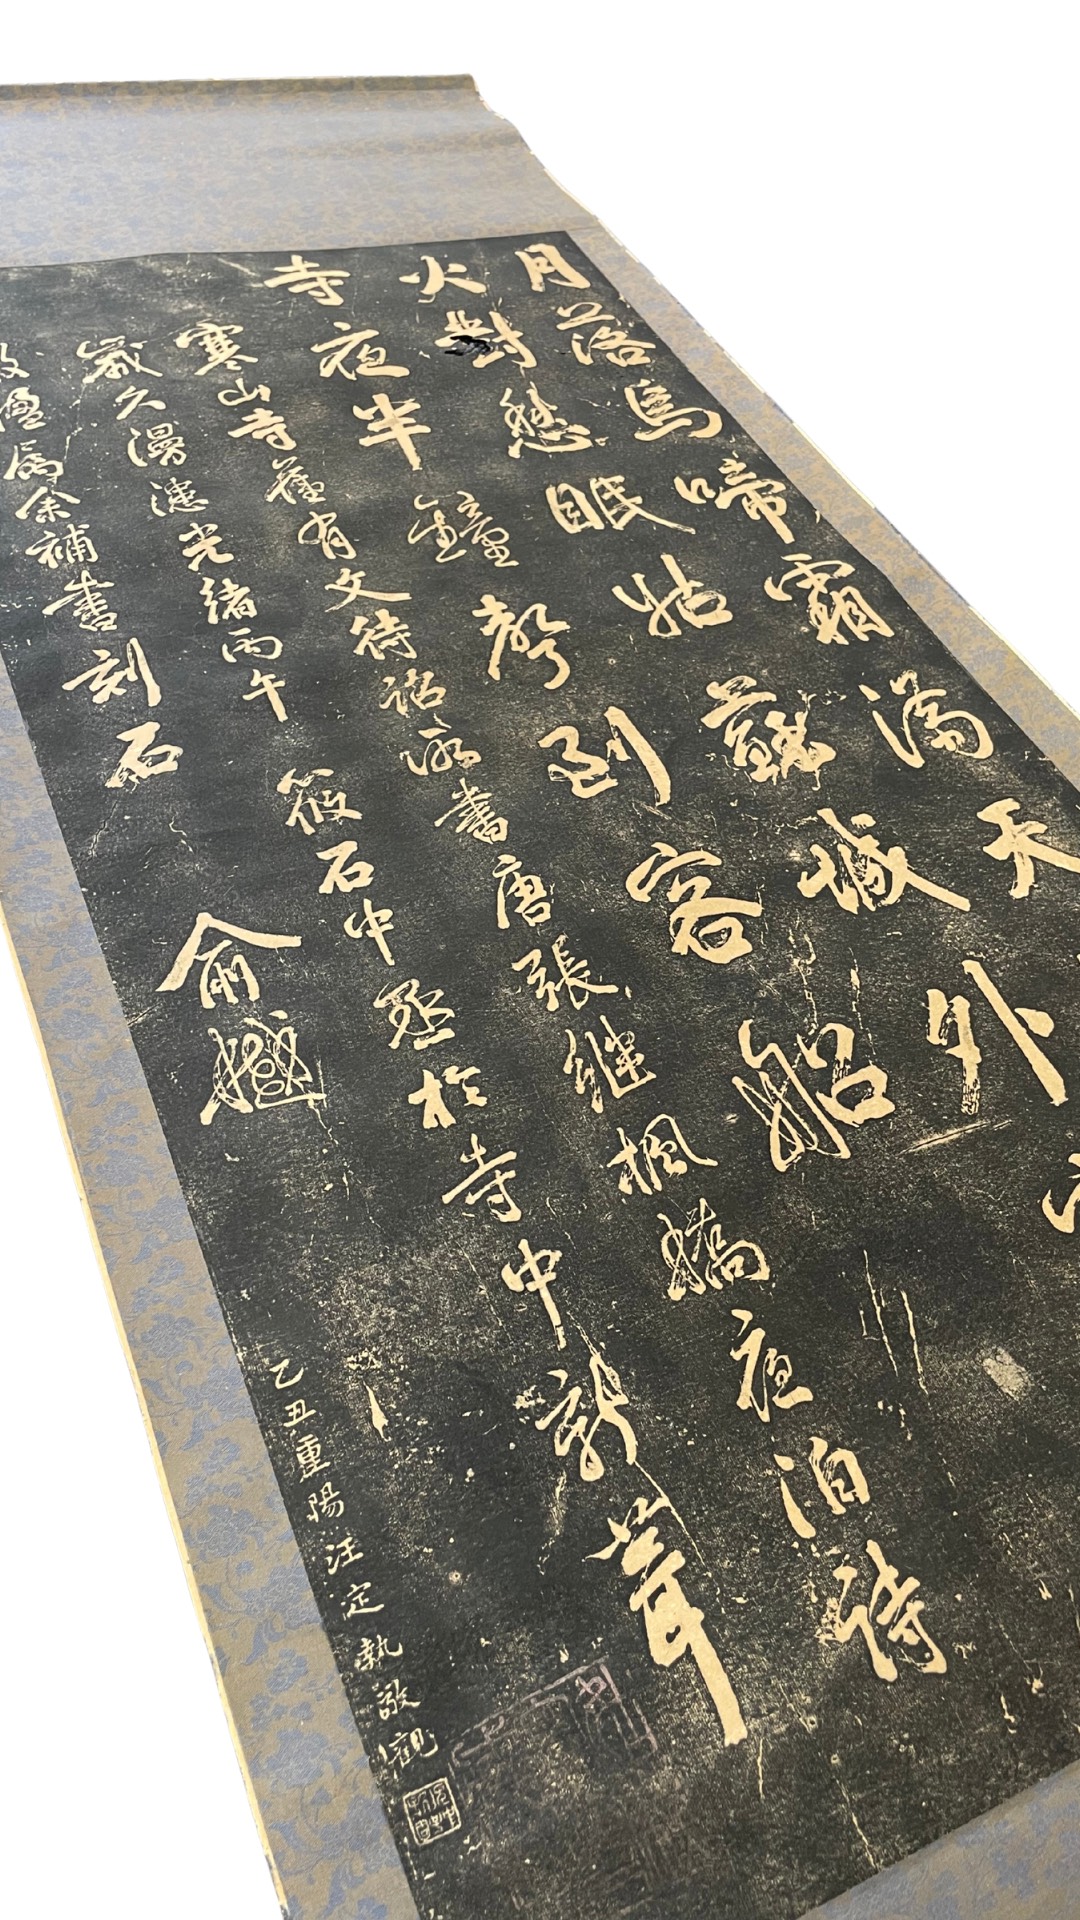 月落烏啼霜滿天
火對愁眠姑蘇城外
寺夜半鐘聲到客船
寒山寺舊有文待詔所書唐張継楓橋夜泊詩
歲久漫漶光緒丙午筱石中丞於寺中新葺
數楹屬余補書刻石
俞樾
乙丑重陽汪定執敬觀